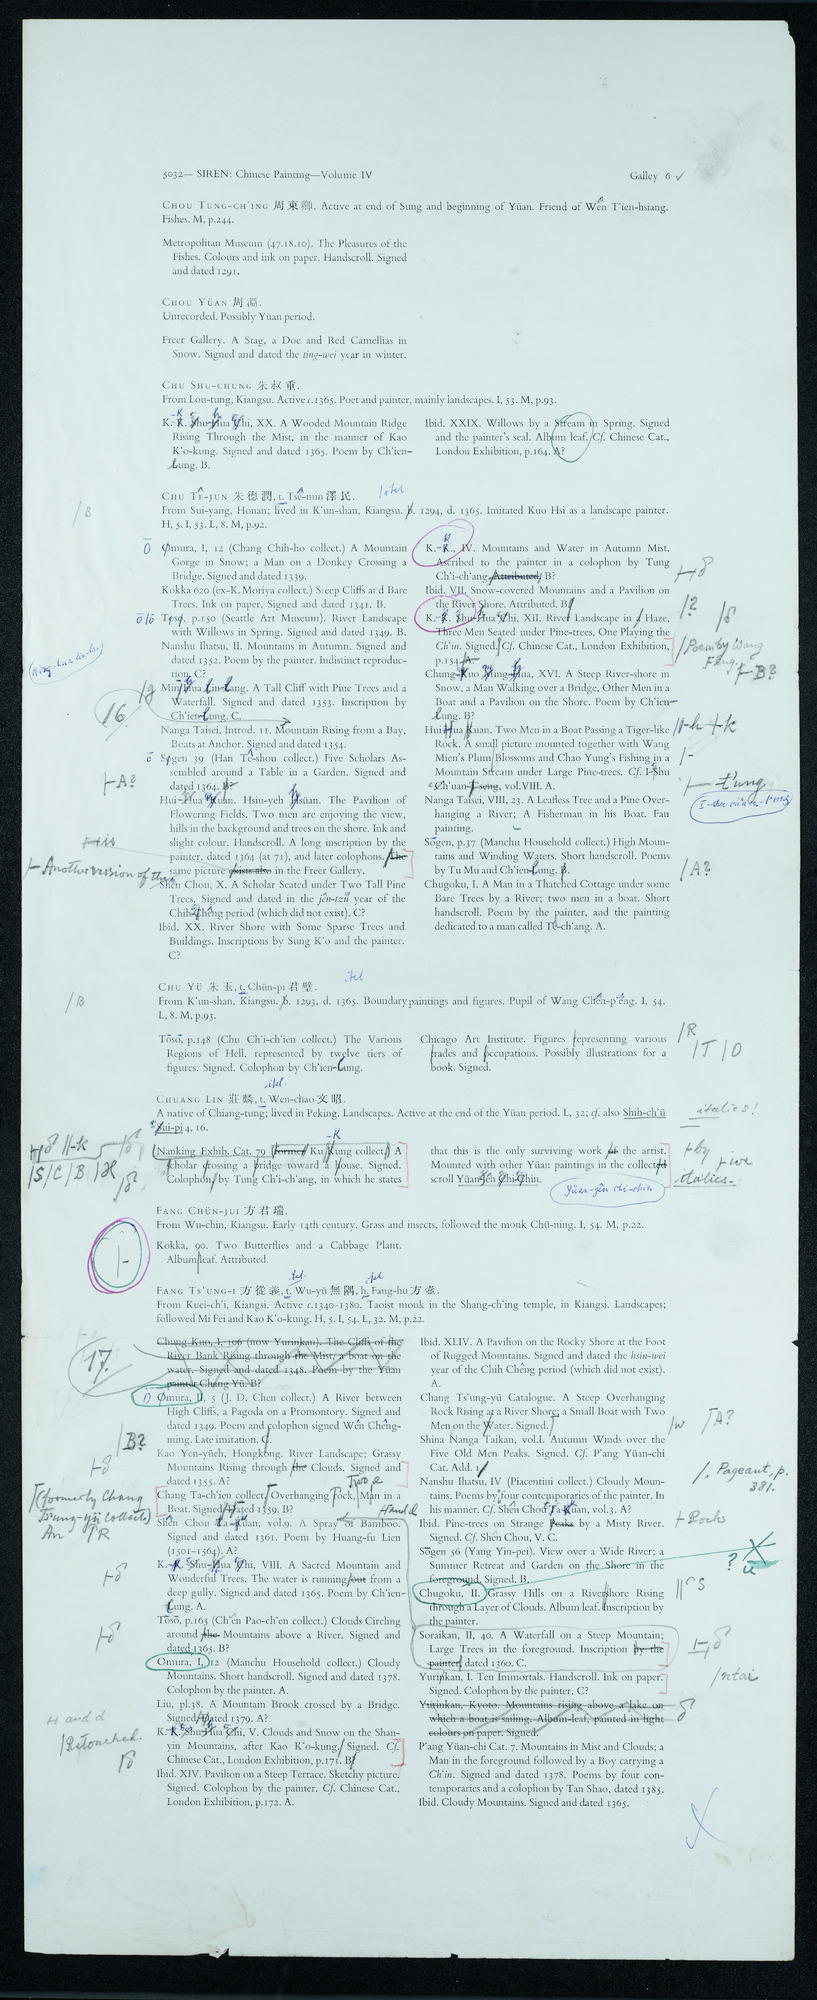 5032— SIREN: Chinese Painting—Volume IV
Galley 6
CHOU TUNG-CH'ING 周東卿. Active at end of Sung and beginning of Yüan. Friend of Wen T'ien-hsiang.
Fishes. M, p.244.
Metropolitan Museum (47.18.10). The Pleasures of the
Fishes. Colours and ink on paper. Handscroll. Signed
and dated 1291.
CHOU YÜAN 周淵.
Unrecorded. Possibly Yüan period.
Freer Gallery. A Stag, a Doe and Red Camellias in
Snow. Signed and dated the ting-wei year in winter.
CHU SHU-CHUNG 朱叔重.
From Lou-tung, Kiangsu. Active c.1365. Poet and painter, mainly landscapes. I, 53. M, p.93.
K.-K. Shu-Hua Chi, XX. A Wooded Mountain Ridge
Rising Through the Mist, in the manner of Kao
K'o-kung. Signed and dated 1365. Poem by Ch'ien-
Lung. B.
Ibid. XXIX. Willows by a Stream in Spring. Signed
and the painter's seal. Album leaf. Cf. Chinese Cat.,
London Exhibition, p.164. A?
CHU TÊ-JUN 朱德潤, t. Tsê-min 澤民.
ital
/B
From Sui-yang, Honan; lived in K'un-shan, Kiangsu. b. 1294, d. 1365. Imitated Kuo Hsi as a landscape painter.
H, 5. I, 53. L, 8. M, p.92.
Ō Omura, I, 12 (Chang Chih-ho collect.) A Mountain
Gorge in Snow; a Man on a Donkey Crossing a
Bridge. Signed and dated 1339.
Kokka 620 (ex-K. Moriya collect.) Steep Cliffs and Bare
Trees. Ink on paper. Signed and dated 1341. B.
Toso, p.150 (Seattle Art Museum). River Landscape
with Willows in Spring. Signed and dated 1349. B.
Nanshu Ihatsu, II. Mountains in Autumn. Signed
and dated 1352. Poem by the painter. Indistinct reproduc-
tion. C?
Ming-Hua Lin-lang. A Tall Cliff with Pine Trees and a
Waterfall. Signed and dated 1353. Inscription by
Ch'ien-Lung. C.
16
Nanga Taisei, Introd. 11. Mountain Rising from a Bay,
Boats at Anchor. Signed and dated 1354.
Sogen 39 (Han Tê-shou collect.) Five Scholars As-
sembled around a Table in a Garden. Signed and
dated 1364. B?
A?
Hui-Hua Kuan. Hsiu-yeh Hsüan. The Pavilion of
Flowering Fields. Two men are enjoying the view,
hills in the background and trees on the shore. Ink and
slight colour. Handscroll. A long inscription by the
painter, dated 1364 (at 71), and later colophons. The
same picture exists also in the Freer Gallery.
Another version of the
Shên Chou, X. A Scholar Seated under Two Tall Pine
Trees. Signed and dated in the jên-tzŭ year of the
Chih-Chêng period (which did not exist). C?
Ibid. XX. River Shore with Some Sparse Trees and
Buildings. Inscriptions by Sung K'o and the painter.
C?
K.-K., IV. Mountains and Water in Autumn Mist.
Ascribed to the painter in a colophon by Tung
Ch'i-ch'ang. Attributed. B?
Ibid. VII. Snow-covered Mountains and a Pavilion on
the River Shore. Attributed. B
K.-K. Shu-Hua Chi, XII. River Landscape in Haze,
Three Men Seated under Pine-trees, One Playing the
Ch'in. Signed. Cf. Chinese Cat., London Exhibition,
p.154. A.
/Poem by Wang
Fêng.
B?
Chung-Kuo Ming-Hua, XVI. A Steep River-shore in
Snow, a Man Walking over a Bridge, Other Men in a
Boat and a Pavilion on the Shore. Poem by Ch'ien-
Lung. B?
Hui Hua Kuan. Two Men in a Boat Passing a Tiger-like
Rock. A small picture mounted together with Wang
Mien's Plum Blossoms and Chao Yung's Fishing in a
Mountain Stream under Large Pine-trees. Cf. I-Shu
Ch'uan-Tseng, vol.VIII. A.
t'ung
Nanga Taisei, VIII, 23. A Leafless Tree and a Pine Over-
hanging a River; A Fisherman in his Boat. Fan
painting.
Sōgen, p.37 (Manchu Household collect.) High Moun-
tains and Winding Waters. Short handscroll. Poems
by Tu Mu and Ch'ien-Lung. B.
/A?
Chugoku, I. A Man in a Thatched Cottage under some
Bare Trees by a River; two men in a boat. Short
handscroll. Poem by the painter, and the painting
dedicated to a man called Tê-ch'ang. A.
CHU YÜ 朱玉, t. Chün-pi 君璧.
ital
/B
From K'un-shan, Kiangsu. b. 1293, d. 1365. Boundary paintings and figures. Pupil of Wang Chên-p'êng. I, 54.
L, 8. M, p.93.
Tōsō, p.148 (Chu Ch'i-ch'ien collect.) The Various
Regions of Hell, represented by twelve tiers of
figures. Signed. Colophon by Ch'ien-Lung.
Chicago Art Institute. Figures representing various
trades and occupations. Possibly illustrations for a
book. Signed.
/R
/T /O
ital
CHUANG LIN 莊麟, t. Wen-chao 文昭.
A native of Chiang-tung; lived in Peking. Landscapes. Active at the end of the Yüan period. L, 32; cf. also Shih-ch'ü
italics!
Sui-pi 4, 16.
Nanking Exhib. Cat. 79 (former Ku Kung collect.) A
scholar crossing a bridge toward a house. Signed.
Colophon by Tung Ch'i-ch'ang, in which he states
/S/C/B/H
that this is the only surviving work of the artist.
Mounted with other Yüan paintings in the collected
scroll Yüan-Jên Chi-Chin.
by
ive
italics.
Yüan-jên chi-chin
FANG CHÜN-JUI 方君瑞.
From Wu-chin, Kiangsu. Early 14th century. Grass and insects, followed the monk Chü-ning. I, 54. M, p.22.
Kokka, 90. Two Butterflies and a Cabbage Plant.
Album leaf. Attributed.
ital
ital
FANG TS'UNG-I 方從義, t. Wu-yü 無隅, h. Fang-hu 方壺.
From Kuei-ch'i, Kiangsi. Active c.1340–1380. Taoist monk in the Shang-ch'ing temple, in Kiangsi. Landscapes;
followed Mi Fei and Kao K'o-kung. H, 5. I, 54. L, 32. M, p.22.
17.
Chung Kuo, I, 106 (now Yurinkan). The Cliffs of the
River Bank Rising through the Mist, a boat on the
water. Signed and dated 1348. Poem by the Yüan
painter Chang Yü. B?
Omura, II, 5 (J. D. Chen collect.) A River between
High Cliffs, a Pagoda on a Promontory. Signed and
dated 1349. Poem and colophon signed Wên Chêng-
ming. Late imitation. C.
/B?
Kao Yen-yüeh, Hongkong. River Landscape; Grassy
Mountains Rising through the Clouds. Signed and
dated 1355. A?
Two
Chang Ta-ch'ien collect. Overhanging Rock, Man in a
Boat. Signed, dated 1359. B?
(formerly Chang
Ts'ung-yü collect.)
Shên Chou Ta-Kuan, vol.9. A Spray of Bamboo.
Signed and dated 1361. Poem by Huang-fu Lien
(1501–1564). A?
K.-K. Shu-Hua Chi, VIII. A Sacred Mountain and
Wonderful Trees. The water is running out from a
deep gully. Signed and dated 1365. Poem by Ch'ien-
Lung. A.
Tōsō, p.165 (Ch'ên Pao-ch'en collect.) Clouds Circling
around the Mountains above a River. Signed and
dated 1365. B?
Omura, I, 12 (Manchu Household collect.) Cloudy
Mountains. Short handscroll. Signed and dated 1378.
Colophon by the painter. A.
Liu, pl.38. A Mountain Brook crossed by a Bridge.
Signed, dated 1379. A?
K.-K. Shu-Hua Chi, V. Clouds and Snow on the Shan-
yin Mountains, after Kao K'o-kung. Signed. Cf.
Chinese Cat., London Exhibition, p.171. B?
and d
/Retouched.
Ibid. XIV. Pavilion on a Steep Terrace. Sketchy picture.
Signed. Colophon by the painter. Cf. Chinese Cat.,
London Exhibition, p.172. A.
Ibid. XLIV. A Pavilion on the Rocky Shore at the Foot
of Rugged Mountains. Signed and dated the hsin-wei
year of the Chih Chêng period (which did not exist).
A.
Chang Ts'ung-yü Catalogue. A Steep Overhanging
Rock Rising at a River Shore; a Small Boat with Two
Men on the Water. Signed.
/w
A?
Shina Nanga Taikan, vol.I. Autumn Winds over the
Five Old Men Peaks. Signed. Cf. P'ang Yüan-chi
Cat. Add. 1
Pageant, p.
381.
Nanshu Ihatsu, IV (Piacentini collect.) Cloudy Moun-
tains. Poems by four contemporaries of the painter. In
his manner. Cf. Shên Chou Ta-Kuan, vol.3. A?
Ibid. Pine-trees on Strange Peaks by a Misty River.
Signed. Cf. Shên Chou, V. C.
Rock
Sōgen 56 (Yang Yin-pei). View over a Wide River; a
Summer Retreat and Garden on the Shore in the
foreground. Signed. B.
?
Chugoku, II. Grassy Hills on a River shore Rising
through a Layer of Clouds. Album leaf. Inscription by
the painter.
Soraikan, II, 40. A Waterfall on a Steep Mountain;
Large Trees in the foreground. Inscription by the
painter, dated 1360. C.
Yurinkan, I. Ten Immortals. Handscroll. Ink on paper.
Signed. Colophon by the painter. C?
Yurinkan, Kyoto. Mountains rising above a lake on
which a boat is sailing. Album-leaf, painted in light
colours on paper. Signed.
P'ang Yüan-chi Cat. 7. Mountains in Mist and Clouds; a
Man in the foreground followed by a Boy carrying a
Ch'in. Signed and dated 1378. Poems by four con-
temporaries and a colophon by Tan Shao, dated 1385.
Ibid. Cloudy Mountains. Signed and dated 1365.